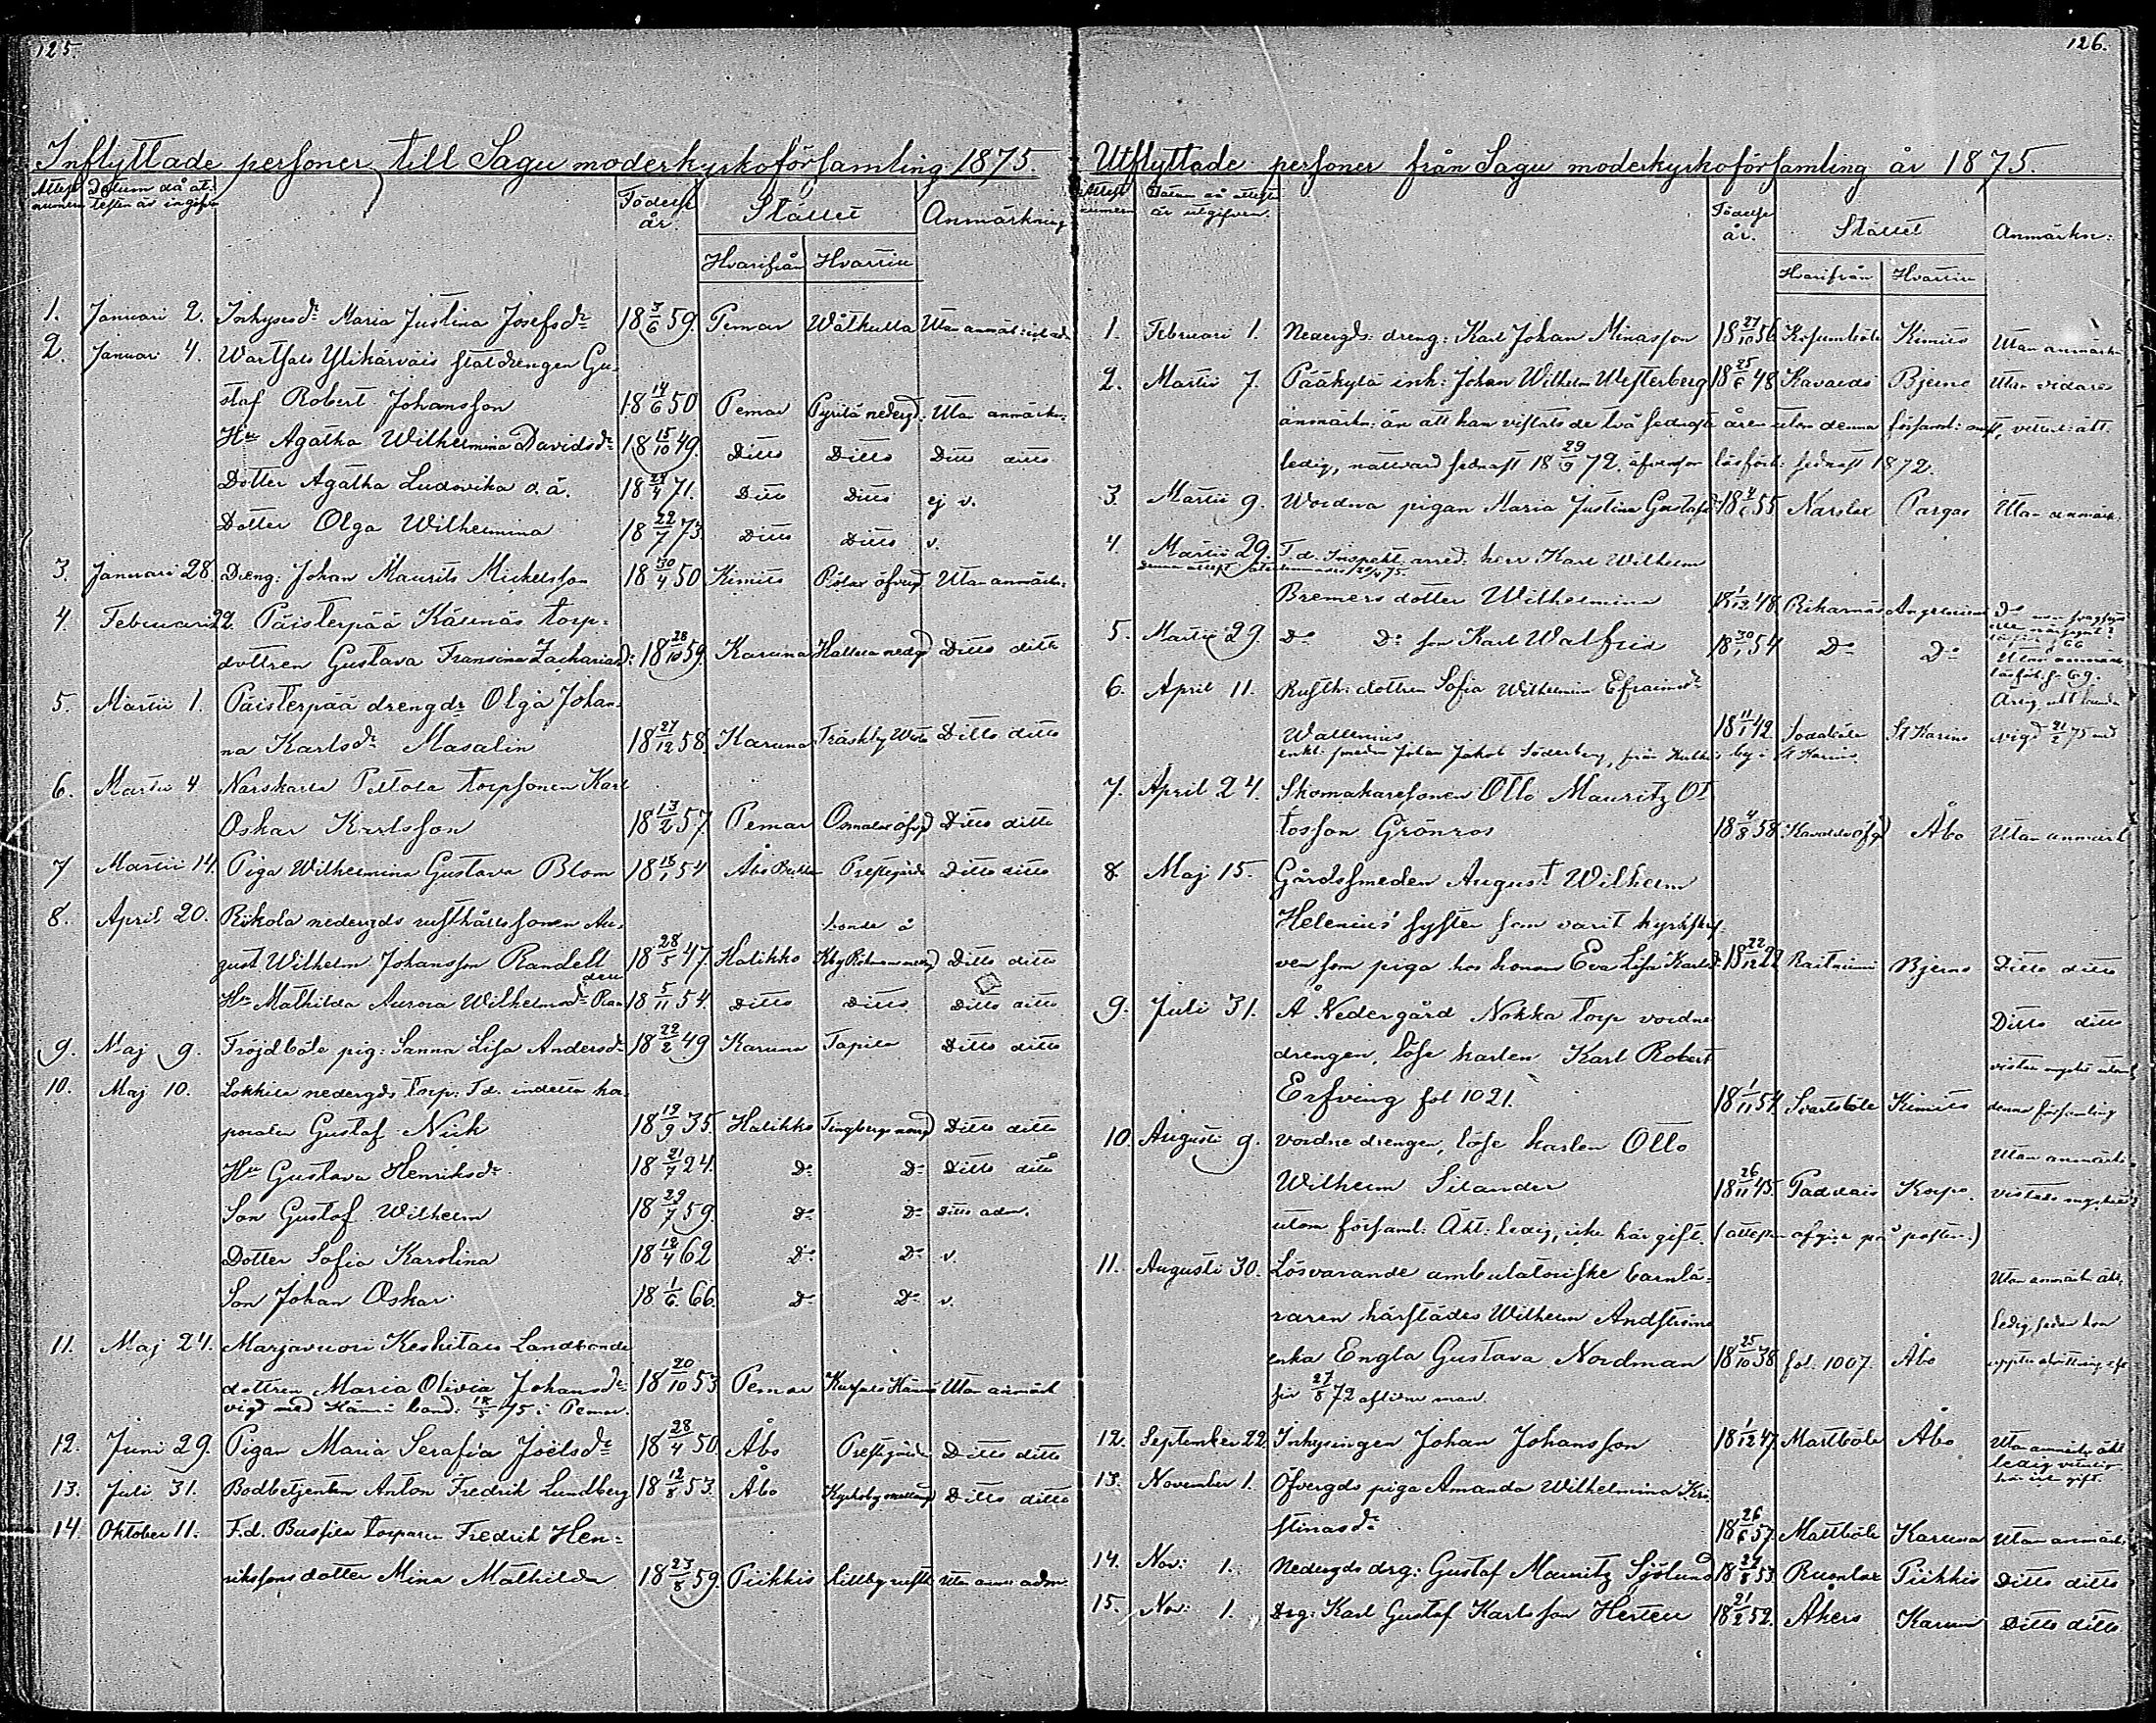 125.
Inflyttade personer till Sagu moderkyrkoförsamling 1875.
Attest numern
Datum då attesten är ingifven
Födelse år.
Stället
Hvarifrån Hvartill
Anmärkning
1. Januari 2. Inhysesdr Maria Justina Josefsdr 18 3/6 59. Pemar Wåhkulla Utan anmärk:
2. Januari 4. Wartsais Ylikärväis statdrengen Gu-
staf Robert Johansson 18 14/6 50 Pemar Pyritä nedergd. Utan anmärkn:
Hu Agatha Wilhelmina Davidsdr 18 15/10 49. Ditto Ditto Ditto ditto
Dotter Agatha Ludovika o. ä. 18 /4 71. Ditto Ditto ej v.
Dotter Olga Wilhelmina 18 22/7 73. Ditto Ditto v.
3. Januari 28. Dreng: Johan Maurits Mickelsson 18 30/4 50 Kimito öfvergd Utan anmärkn:
4. Februari 22. Päisterpää Kärmäs torp-
dottren Gustava Fransina Zachariasdr: 18 28/10 59. Karuna nedgd Ditto ditto
5. Martii 1. Päisterpää drengdr Olga Johan-
na Karlsdr Masalin 18 27/12 58. Karuna Träskby Ditto ditto
6. Martii 4 Närskarla Peltola torpsonen Karl
Oskar Karlsson 18 13/2 57. Pemar Ditto ditto
7 Martii 14. Piga Wilhelmina Gustava Blom 18 15/1 54 Åbo Prestgård Ditto ditto
8. April 20. Rikola nedergds rusthållssonen Au- bonde å
gust Wilhelm Johansson Randell 18 28/5 47. Halikko Kby Ditto ditto
Hu Mathilda Aurora Wilhelmsdr Ran dell 18 5/11 54. Ditto Ditto Ditto ditto
9. Maj 9. Fröjdböle pig: Sanna Lisa Andersdr 18 22/2 49 Karuna Tapila Ditto ditto
10. Maj 10. Lokkila nedergds torp: f.d. indelta kor-
poralen Gustaf Nick 18 19/9 35. Halikko Tingberga Ditto ditto
Hu Gustava Henriksdr 18 21/7 24. Do Do Ditto ditto
Son Gustaf Wilhelm 18 29/7 59. Do Do Ditto adm.
Dotter Sofia Karolina 18 12/4 62 Do Do v.
Son Johan Oskar 18 1/6 66. Do Do v.
11. Maj 24. Marjavuori Keskitalo Landbonde
dottren Maria Olivia Johansdr 18 20/10 53 Pemar Utan anmärk
vigd med 75 i Pemar.
12. Juni 29. Pigan Maria Serafia Joëlsdr 18 28/4 50. Åbo Prestgård Ditto ditto
13. Juli 31. Bodbetjenten Anton Fredrik Lundberg 18 12/8 53. Åbo Kyrkoby Ditto ditto
14. Oktober 11. F.d. Bussila torparen Fredrik Hen-
rikssons dotter Mina Mathilda 18 23/8 59. Piikkis Lillby rusth Utan anm. adm.
126.
Utflyttade personer från Sagu moderkyrkoförsamling år 1875.
Attest numern
Datum då attesten är utgifven.
Födelse år.
Stället
Hvarifrån Hvartill
Anmärkn:
1. Februari 1. Nedergds: dreng: Karl Johan Minasson 18 27/10 56. Kimito Utan anmärkn
2. Martii 7. Pääkylä inh: Johan Wilhelm Westerberg 18 25/6 48 Kavaldo Bjerno Utan vidare
anmärkn: än att han vistats de två sednaste åren utom denna församl:
ledig, nattvard sednast 18 29/9 72. äfvensom läsförh: sednast 1872.
3. Martii 9. Wordna pigan Maria Justina Gustafsdr 18 4/6 55 Narslax Pargas Utan anmärk.
4. Martii 29. F.d. Inspekt: arred: herr Karl Wilhelm
Bremers dotter Wilhelmina 18 1/12 48. Angelniemi
5. Martii 29. Do Do son Karl Walfrid 18 30/1 54 Do Do Utan anmärk.
6. April 11. Rusth: dottren Sofia Wilhelmina Efraimsdr
Wallenius 18 11/1 42. St Karins
enkl: smeden Johan Jakob Söderberg, från by i St Karins.
7. April 24. Skomakaresonen Otto Mauritz Ot-
tosson Grönros 18 4/8 58. Åbo Utan anmärk
8 Maj 15. Gårdssmeden August Wilhelm
Helenius' syster som varit
ven som piga hos honom Eva Lisa Karlsdr 18 22/12 22 Raitniemi Bjerno Ditto ditto
9. Juli 31. Å Nedergård Nokka torp vordne Ditto ditto
drengen, löse karlen Karl Robert
Erfving fol 1021. 18 1/11 54. Svartböle Kimito denna församling
10. Augusti 9. Vordne drengen, löse karlen Otto Utan anmärkn.
Wilhelm Silander 18 26/11 45. Paddais Korpo. vistats
utom församl: Äkt: ledig, icke här gift. (attesten afgick på posten.)
11. Augusti 30. Lösvarande ambulatoriske barnlä-
raren härstädes Wilhelm Andströms
enka Engla Gustava Nordman 18 25/10 38. fol. 1007. Åbo
sin 27/8 72 aflidne man.
12. September 22. Inhysingen Johan Johansson 18 1/12 47. Mattböle Åbo Utan anmärkn äkt
ledig
här icke gift.
13. November 1. Öfvergds piga Amanda Wilhelmina Kri-
stinasdr 18 26/6 57. Mattböle Karuna Utan anmärkn
14. Nov: 1. Nedergds drg: Gustaf Mauritz Sjölund 18 27/8 53. Ruonlax Piikkis Ditto ditto
15. Nov: 1. Drg: Karl Gustaf Karlsson Hertell 18 21/2 52. Åkers Karuna Ditto ditto